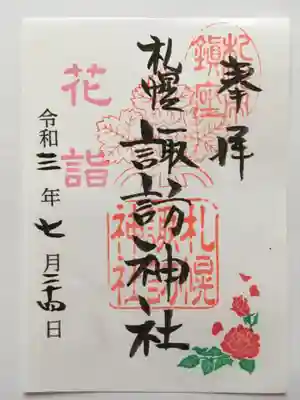 奉拝
札幌鎮座
札幌
諏訪神社
札幌諏訪神社
花詣
令和三年七月二十四日